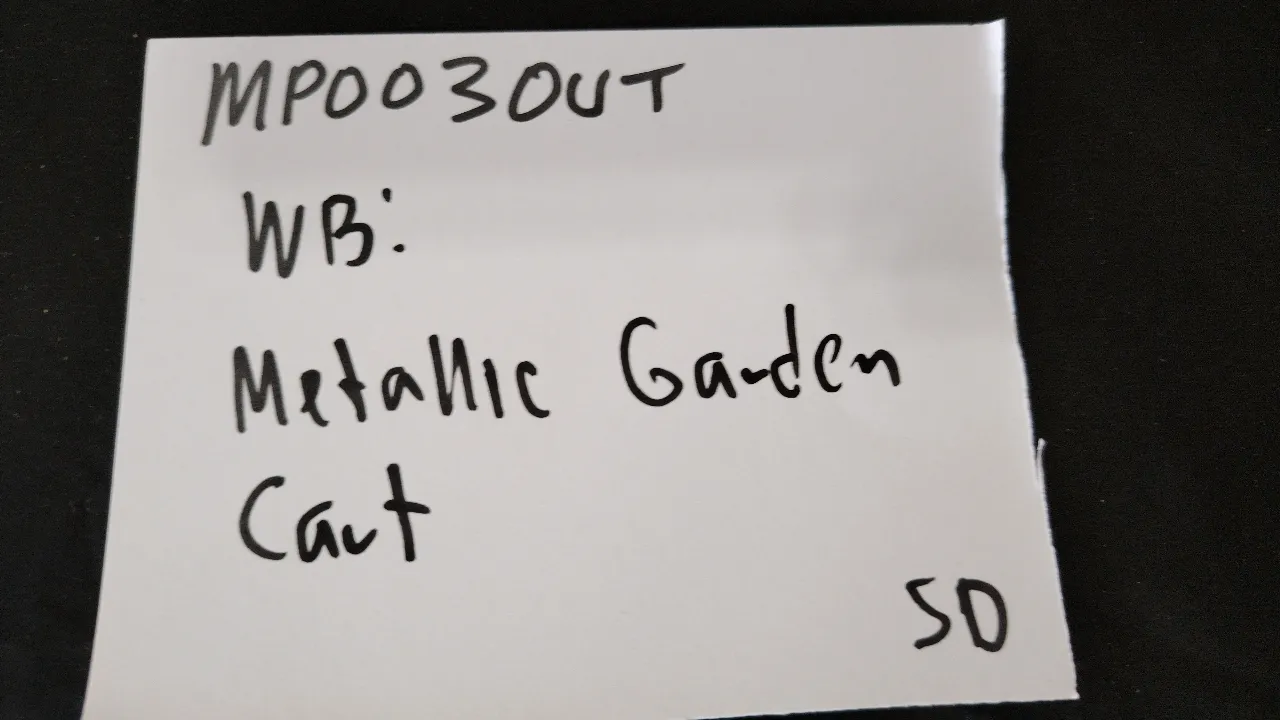 MP0030UT
WB:
Metallic Garden
Cart
SD